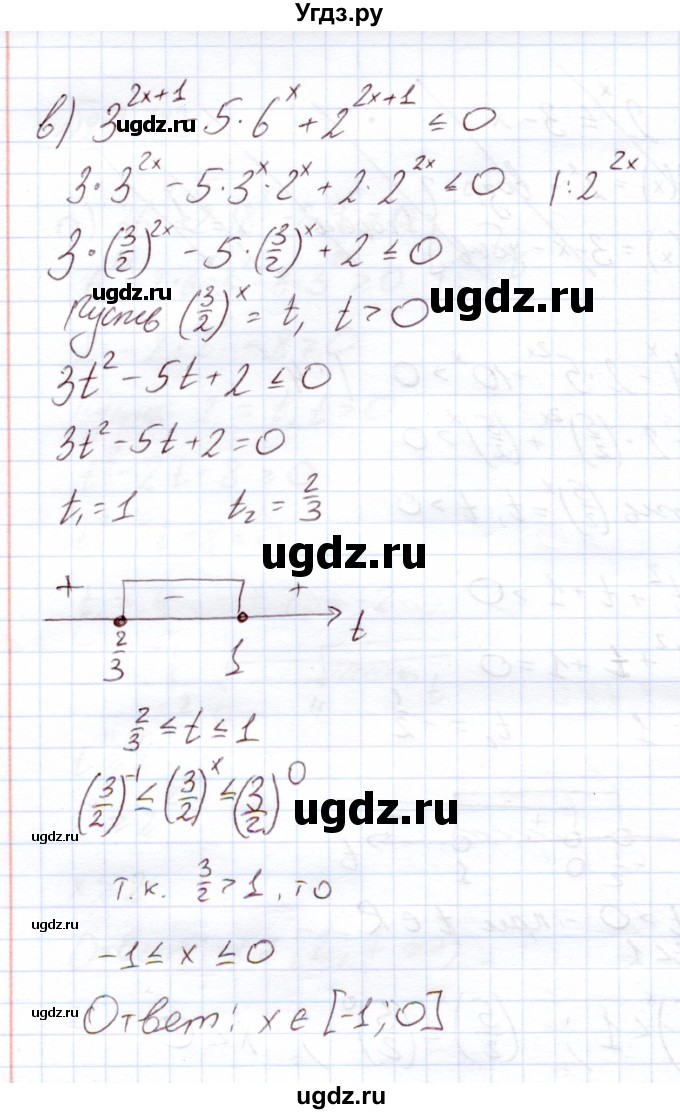 Угдз.ру
в) 3^(2x+1) - 5·6^x + 2^(2x+1) ≤ 0
ugdz.ru
3·3^(2x) - 5·3^x·2^x + 2·2^(2x) ≤ 0 |:2^(2x)
3·(3/2)^(2x) - 5·(3/2)^x + 2 ≤ 0
ugdz.ru ugdz.ru
Пусть (3/2)^x = t, t > 0
3t² - 5t + 2 ≤ 0
3t² - 5t + 2 = 0
t₁ = 1 t₂ = 2/3
ugdz.ru
+ - +
2/3 1 t
2/3 ≤ t ≤ 1
(3/2)^(-1) ≤ (3/2)^x ≤ (3/2)^0
ugdz.ru
ugdz.ru
т.к. 3/2 > 1, то
ugdz.ru
-1 ≤ x ≤ 0
Ответ: x ∈ [-1; 0]
ugdz.ru
ugdz.ru